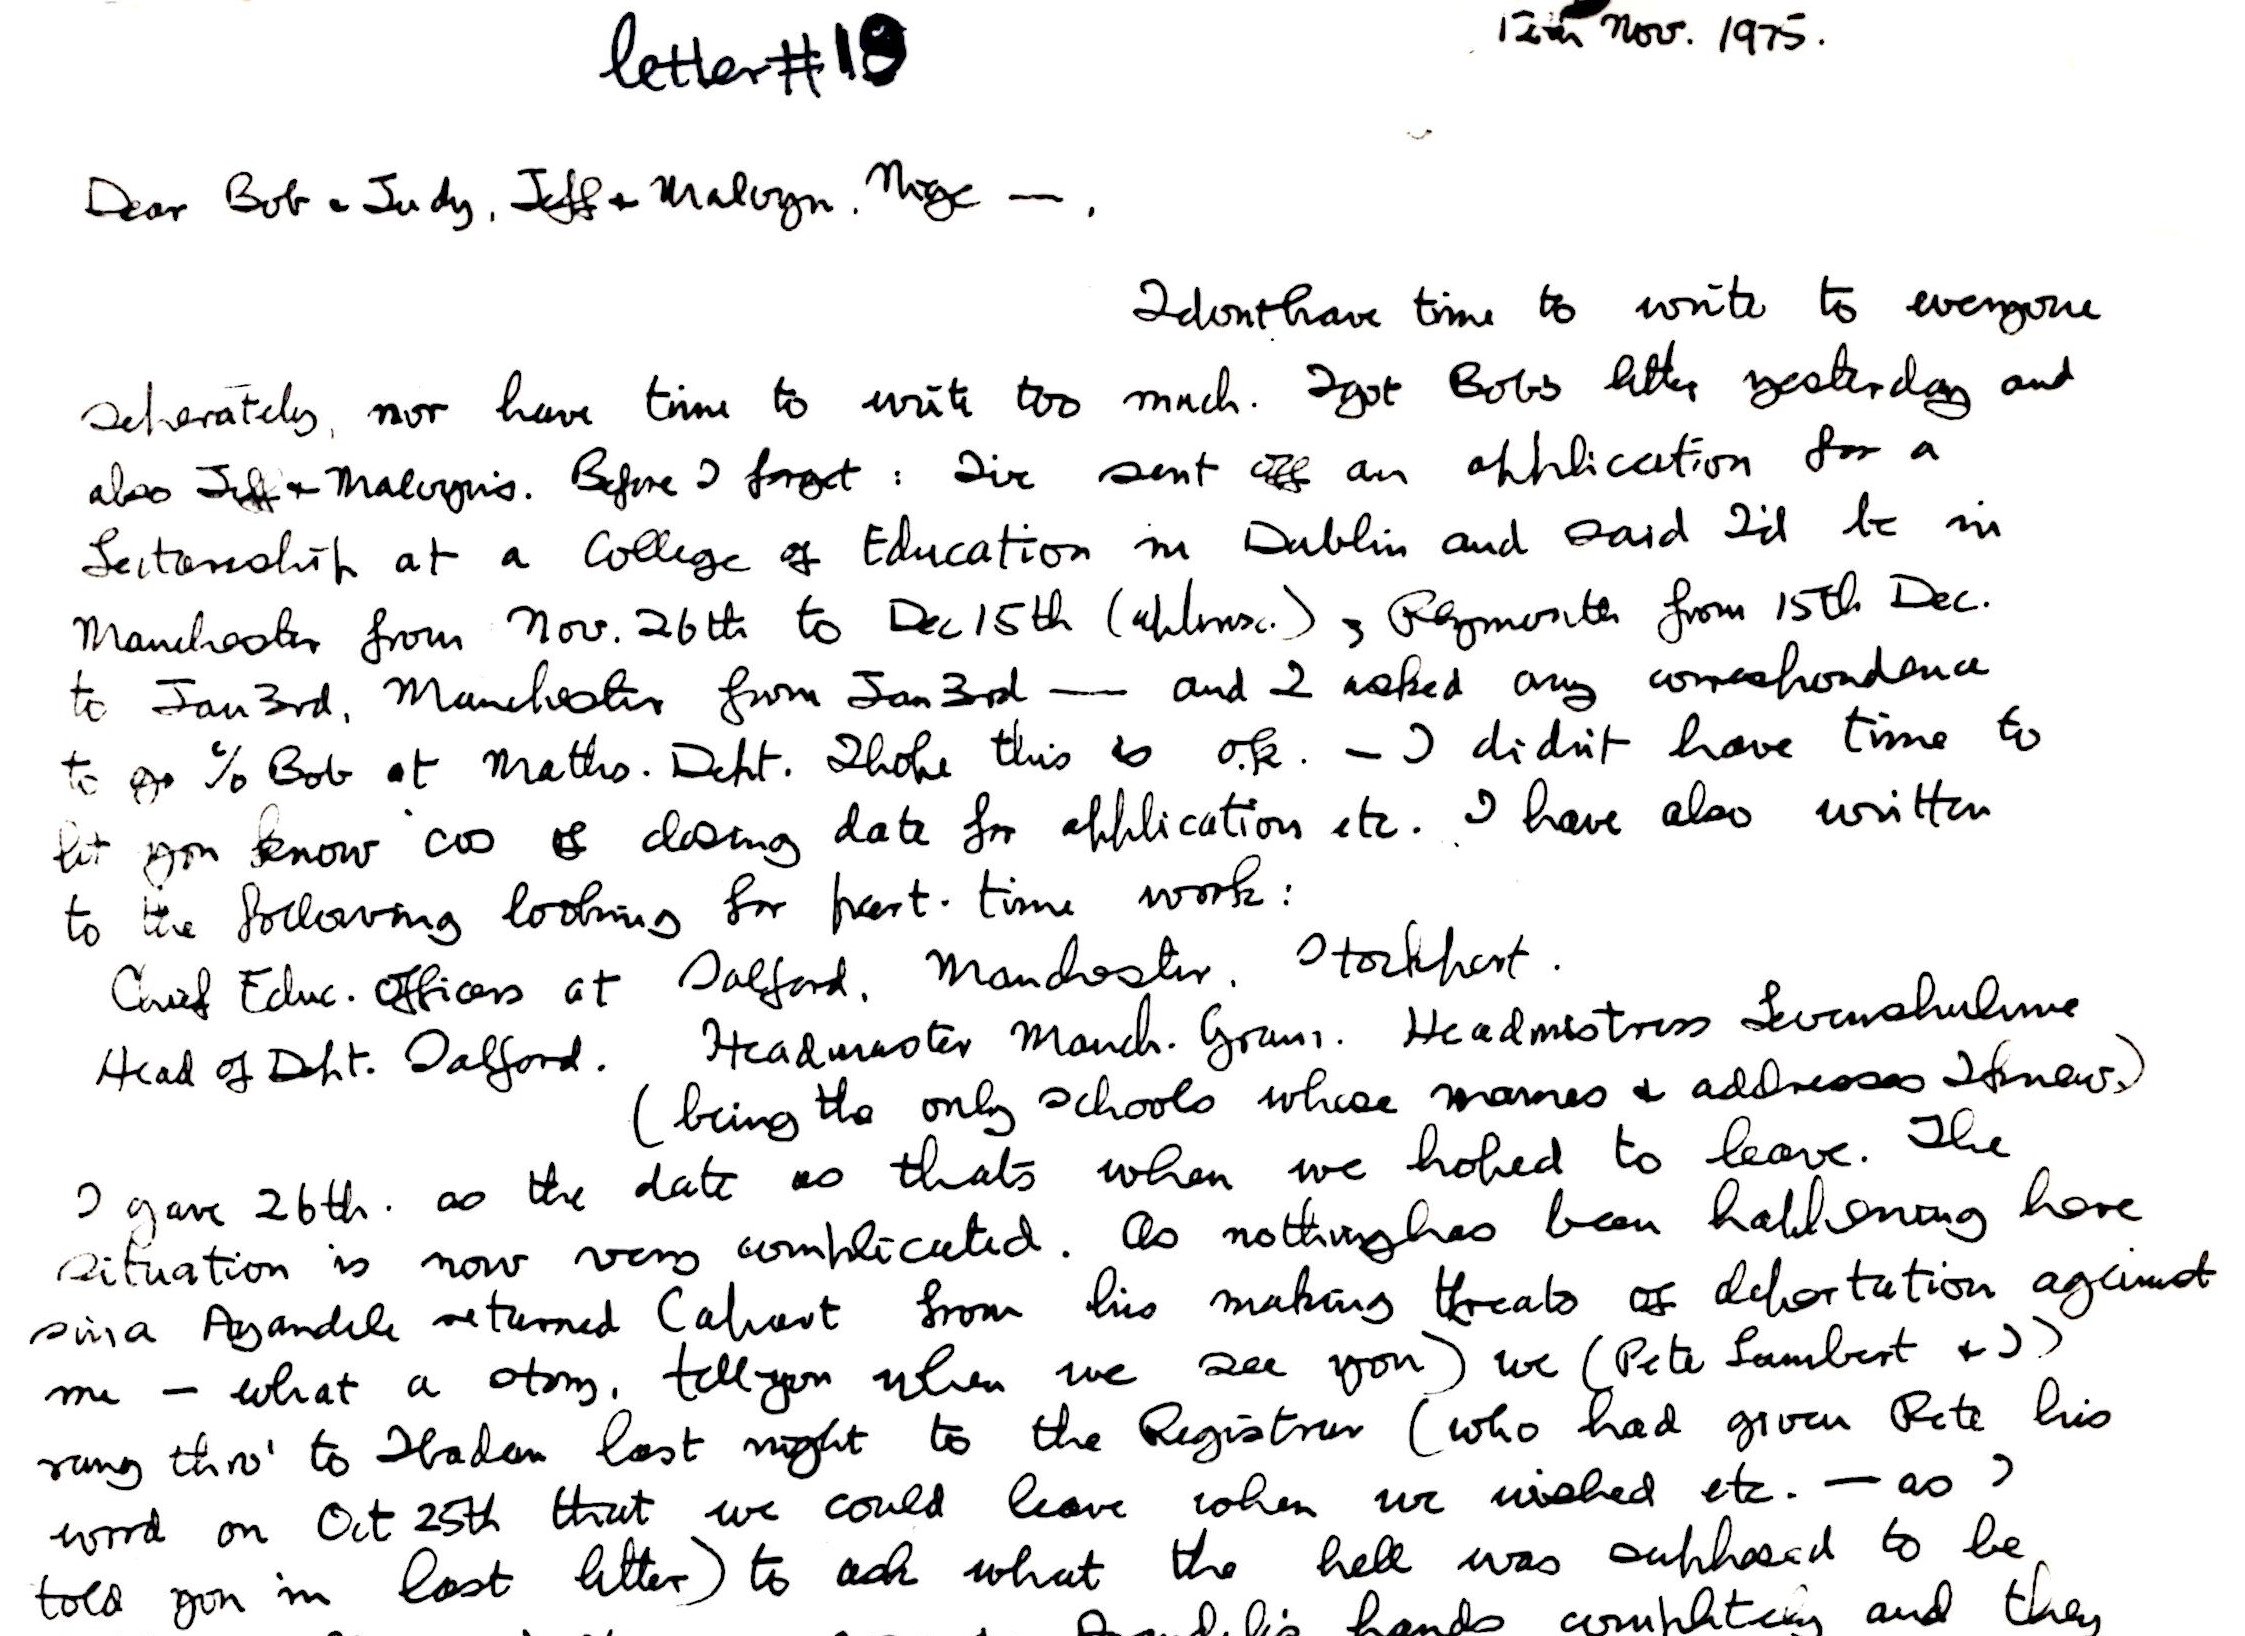 letter #18
Nov. 1975.
Dear Bob & Judy, Jeff + Malvyn. Nige —,
I dont have time to write to everyone
seperately, nor have time to write too much. I got Bobs letter yesterday and
also Jeff + Malvyn's. Before I forget : I've sent off an application for a
Lectureship at a College of Education in Dublin and said I'd be in
Manchester from Nov. 26th to Dec 15th (approx.), Plymouth from 15th Dec.
to Jan 3rd, Manchester from Jan 3rd — and I asked any correspondence
to go c/o Bob at Maths. Dept. I hope this is o.k. – I didn't have time to
let you know 'cos of closing date for application etc. I have also written
to the following looking for part-time work:
Chief Educ. Officers at Salford, Manchester, Stockport.
Head of Dept. Salford. Headmaster Manch. Gram. Headmistress Levenshulme
(being the only schools whose names + addresses I knew.)
I gave 26th. as the date as thats when we hoped to leave. The
situation is now very complicated. As nothing has been happening here
since Ayandele returned (apart from his making threats of deportation against
me – what a story, tell you when we see you) we (Pete Lambert + I)
rang thro' to Ibadan last night to the Registrar (who had given Pete his
word on Oct 25th that we could leave when we wished etc. — as I
told you in last letter) to ask what the hell was supposed to be
Ayandele's hands completely and they